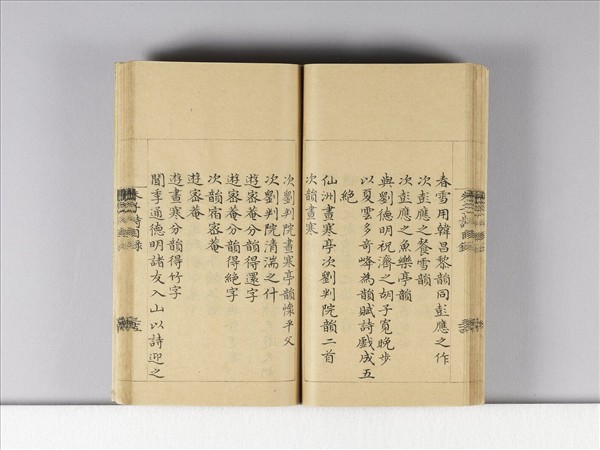 春雪用韓昌黎韻同彭應之作
次彭應之餐雪韻
次彭應之魚樂亭韻
與劉德明祝濟之胡子寬晚步
以夏雲多奇峰為韻賦詩戲成五
絶
仙洲晝寒亭次劉判院韻二首
次韻晝寒
次劉判院晝寒亭韻懷平父
次劉判院清湍之什
遊密菴分韻得還字
遊密菴分韻得絕字
次韻宿密菴
遊密菴
遊晝寒分韻得竹字
聞季通德明諸友入山以詩迎之